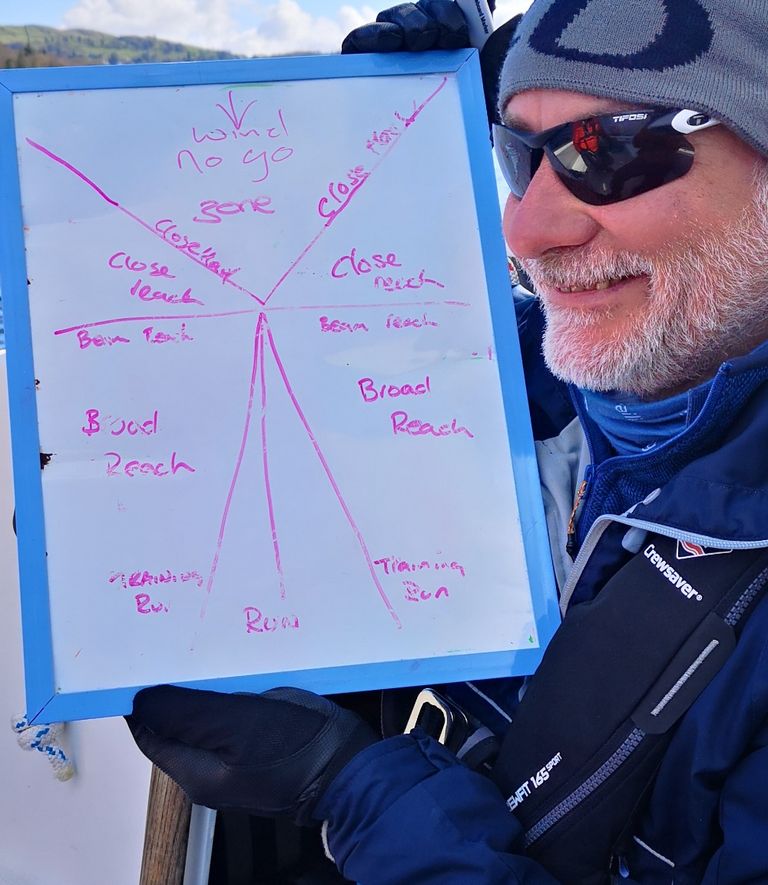 wind
no go
zone
Close Hauled
Close Hauled
Close
reach
Close
reach
Beam reach
Beam reach
Broad
Reach
Broad
Reach
TRAINING
Run
Training
Run
Run
TIFOSI
Crewsaver®
CREWFIT 165 SPORT